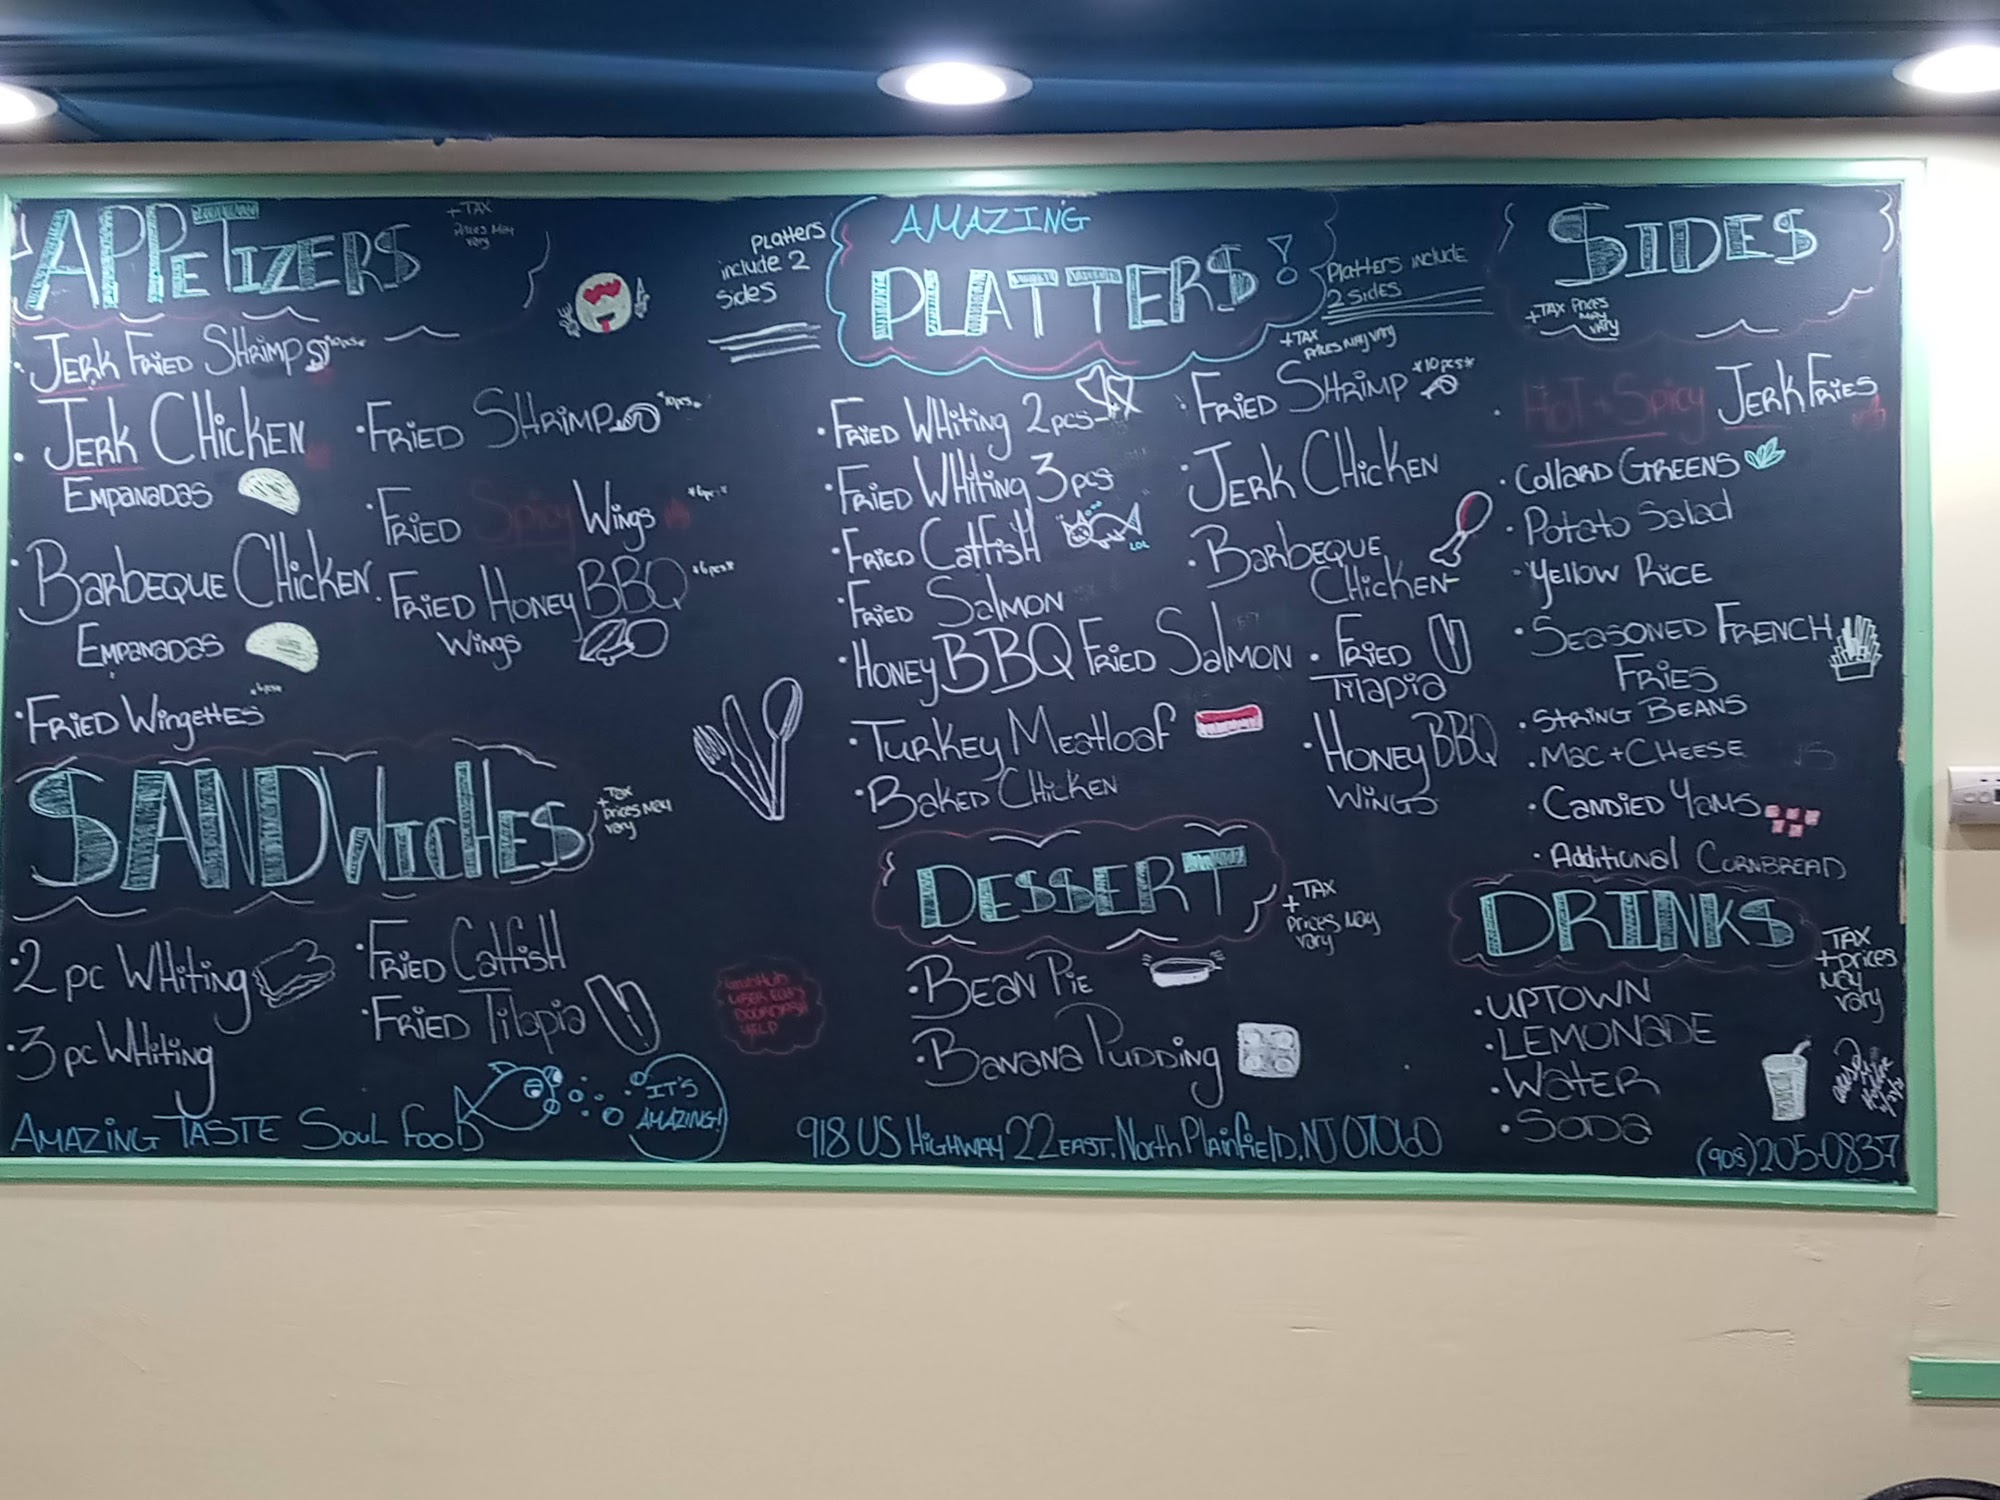 APPETIZERS
+ TAX
Prices May
vary
Jerk Fried Shrimp
Jerk Chicken
Empanadas
Barbeque Chicken
Empanadas
Fried Wingettes
Fried Shrimp *10pcs*
Fried Spicy Wings *6pcs*
Fried Honey BBQ *6pcs*
Wings
SANDWICHES
+ Tax
Prices May
vary
2 pc Whiting
3 pc Whiting
Fried Catfish
Fried Tilapia
AMAZING TASTE SOUL FOOD
IT'S
AMAZING!
GrubHub
UBER EATS
DOORDASH
YELP
Platters
include 2
sides
AMAZING
PLATTERS!
Platters include
2 sides
+TAX
Prices May vary
Fried Whiting 2pcs
Fried Whiting 3pcs
Fried Catfish
LOL
Fried Salmon
Honey BBQ Fried Salmon
Turkey Meatloaf
Baked Chicken
Fried Shrimp *10pcs*
Jerk Chicken
Barbeque
Chicken
Fried
Tilapia
Honey BBQ
Wings
DESSERT
+ TAX
Prices May
vary
Bean Pie
Banana Pudding
918 US Highway 22 East. North Plainfield, NJ 07060
SIDES
+TAX Prices
May
vary
Hot + Spicy Jerk Fries
Collard Greens
Potato Salad
Yellow Rice
Seasoned French
Fries
String Beans
Mac + Cheese
Candied Yams
Additional Cornbread
DRINKS
TAX
+ Prices
May
vary
UPTOWN
LEMONADE
WATER
SODA
(908) 205-0837